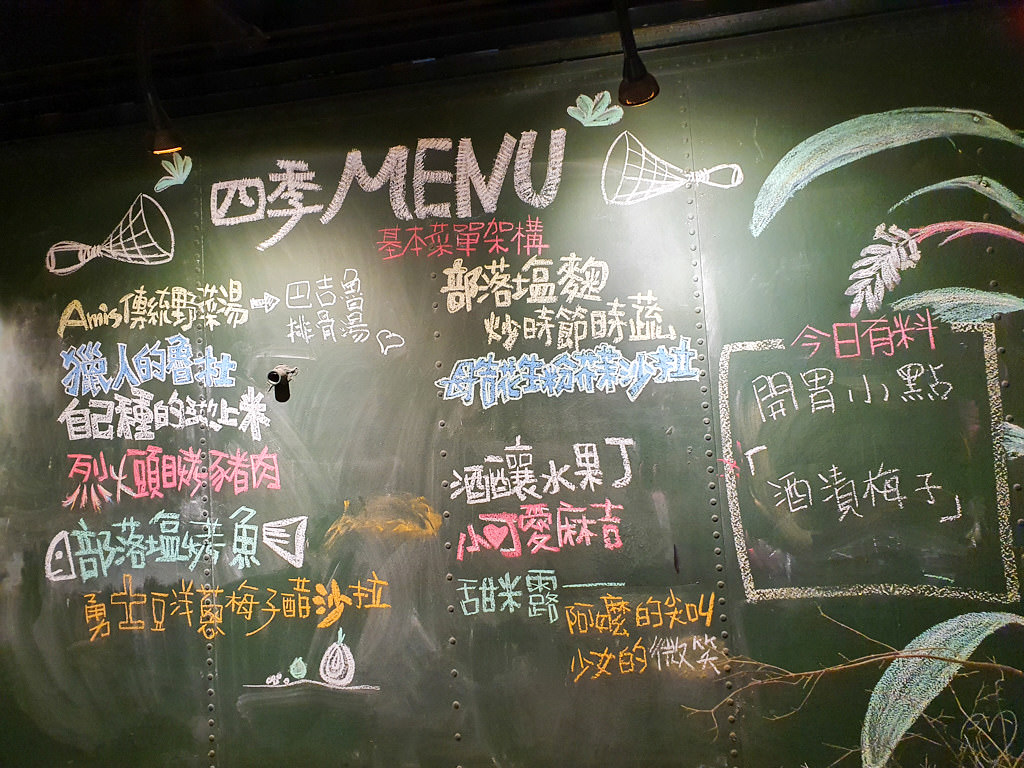 四季MENU
基本菜單架構
Amis傳統野菜湯→巴吉魯
排骨湯
獵人的
自己種的
烈火頭目烤豬肉
部落塩烤魚
勇士豆洋蔥梅子醋沙拉
部落塩麴
炒時節時蔬
花生粉芥菜沙拉
酒釀水果丁
小可愛麻吉
甜米露——
阿嬤的尖叫
少女的微笑
今日有料
開胃小點
「酒漬梅子」